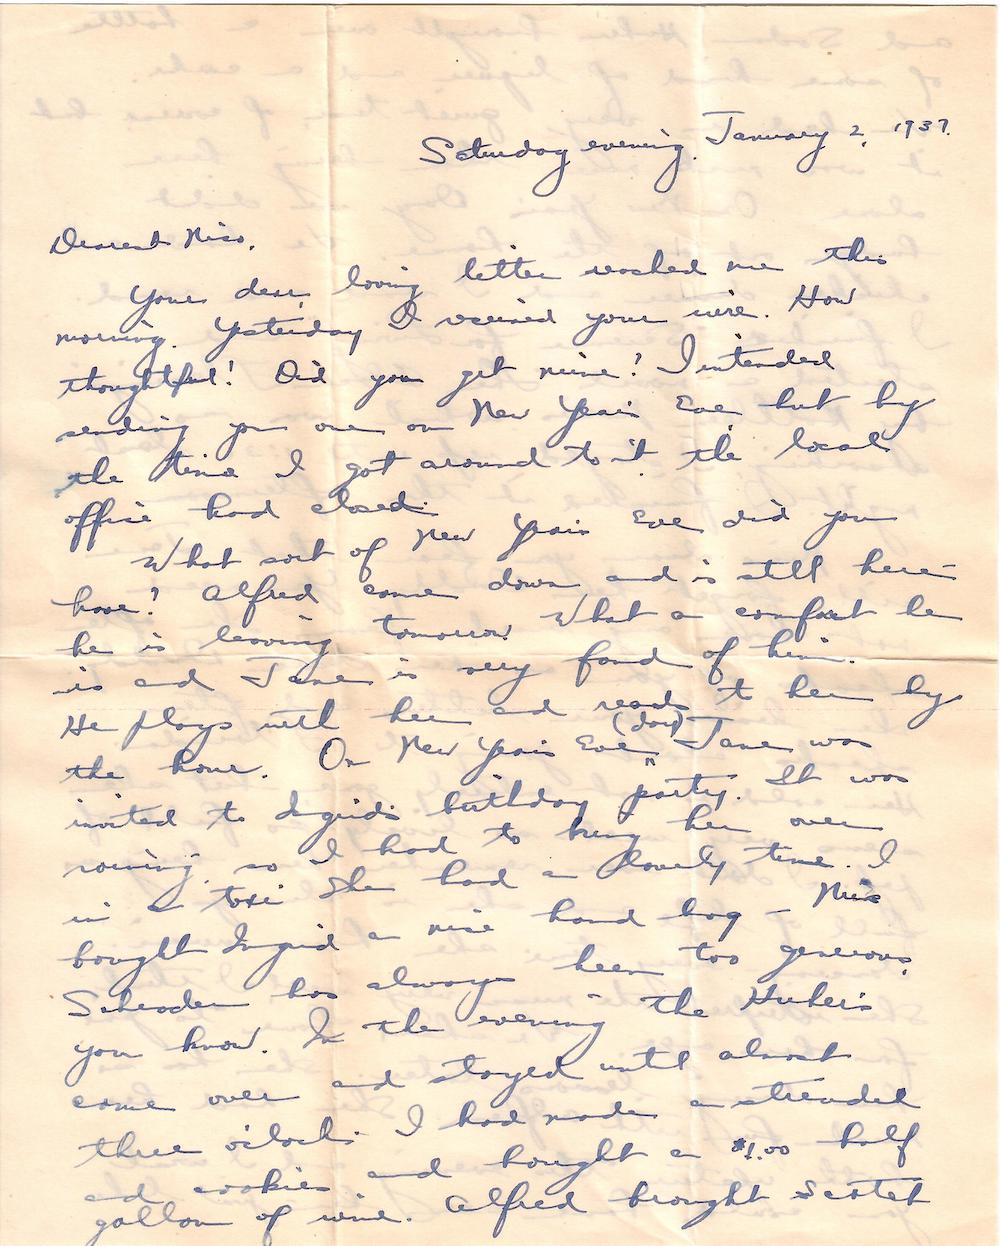 Saturday evening, January 2, 1937.
Dearest Niso,
Your dear, loving letter reached me this
morning. Yesterday I received your wire. How
thoughtful! Did you get mine? I intended
sending you one on New Years Eve but by
the time I got around to it the local
office had closed.
What sort of New Years Eve did you
have? Alfred came down and is still here -
he is leaving tomorrow. What a comfort he
is and Jane is very fond of him.
He plays with her and reads to her by
the hour. On New Years Eve (day) Jane was
invited to Ingrid's birthday party. It was
raining, so I had to bring her over
in a taxi. She had a lovely time. I
bought Ingrid a nice hand bag - Miss
Schroder has always been too generous,
you know. In the evening the Huber's
came over and stayed until almost
three o'clock. I had made a streudel
and cookies and bought a $1.00 half
gallon of wine. Alfred brought Scotch